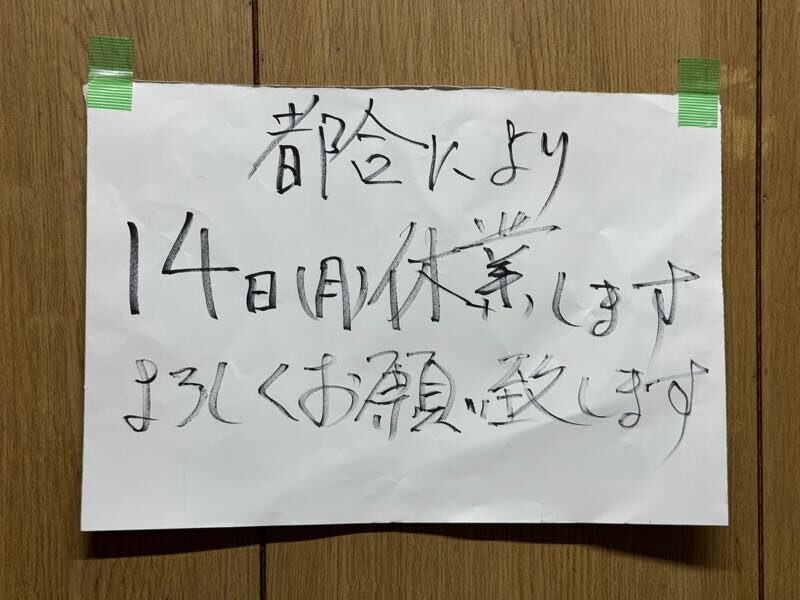 都合により
14日(月)休業します
よろしくお願い致します